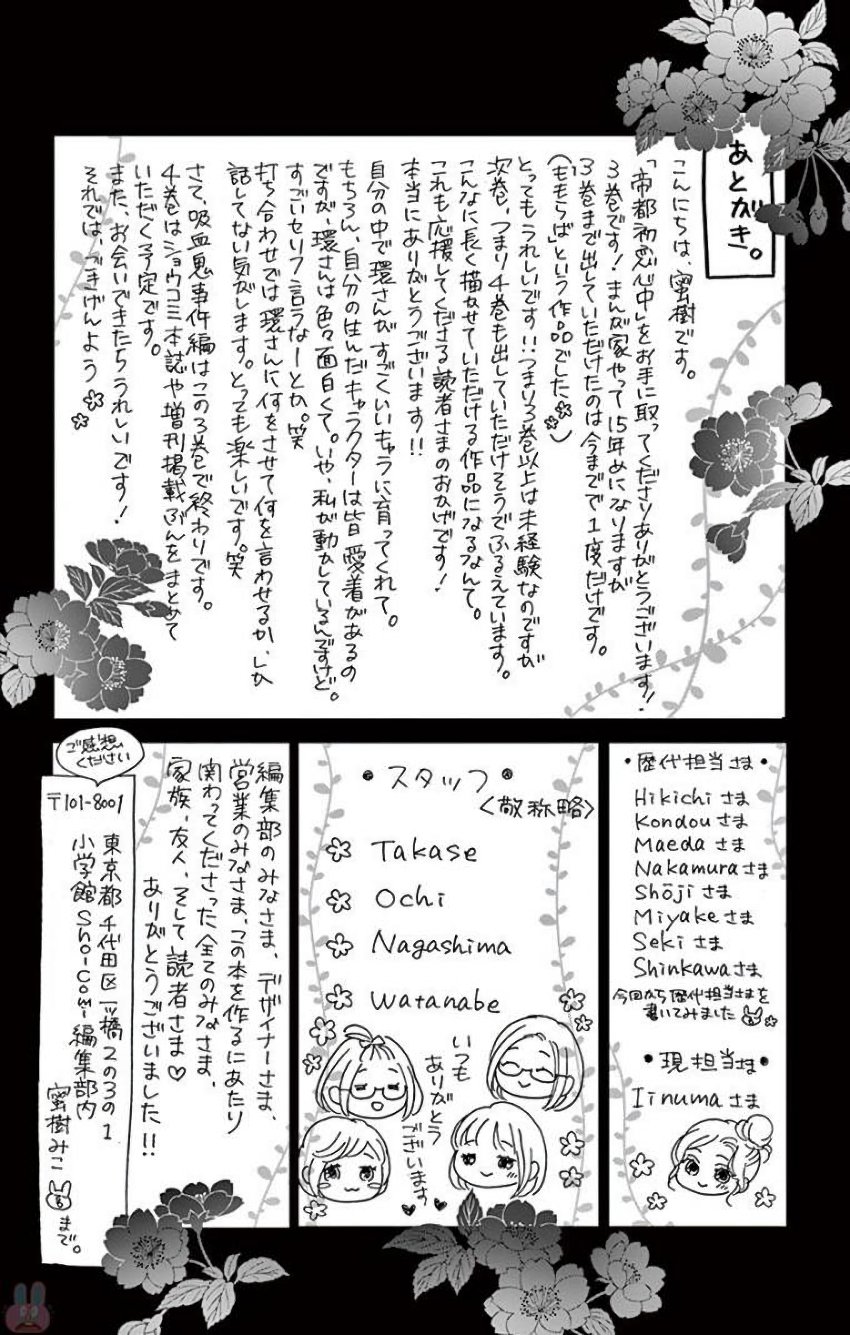 あとがき。
こんにちは、蜜樹です。
「帝都初恋心中」をお手に取ってくださりありがとうございます！
３巻です！まんが家やって１５年めになりますが
３巻まで出していただけたのは今までで１度だけです。
（「ももらば」という作品でした）
とってもうれしいです！！つまり３巻以上は未経験なのですが
次巻、つまり４巻も出していただけそうでふるえています。
こんなに長く描かせていただける作品になるなんて。
これも応援してくださる読者さまのおかげです！
本当にありがとうございます！！
自分の中で環さんがすごくいいキャラに育ってくれて。
もちろん、自分の生んだキャラクターは皆愛着があるの
ですが、環さんは色々面白くて。いや、私が動かしているんですけど。
すごいセリフ言うなーとか。笑
打ち合わせでは環さんに何をさせて何を言わせるか、しか
話してない気がします。とっても楽しいです。笑
さて、吸血鬼事件編はこの３巻で終わりです。
４巻はショウコミ本誌や増刊掲載ぶんをまとめて
いただく予定です。
また、お会いできたらうれしいです！
それでは、ごきげんよう
・歴代担当さま・
Hikichiさま
Kondouさま
Maedaさま
Nakamuraさま
Shōjiさま
Miyakeさま
Sekiさま
Shinkawaさま
今回から歴代担当さまを
書いてみました
・現担当さま・
Iinumaさま
・スタッフ・
〈敬称略〉
Takase
Ochi
Nagashima
Watanabe
いつも
ありがとう
ございます♥♥
編集部のみなさま、デザイナーさま、
営業のみなさま、この本を作るにあたり
関わってくださった全てのみなさま、
家族、友人、そして読者さま♡
ありがとうございました！！
ご感想
ください
〒101-8001
東京都千代田区一ツ橋２の３の１
小学館Sho-Comi編集部内
蜜樹みこ まで。